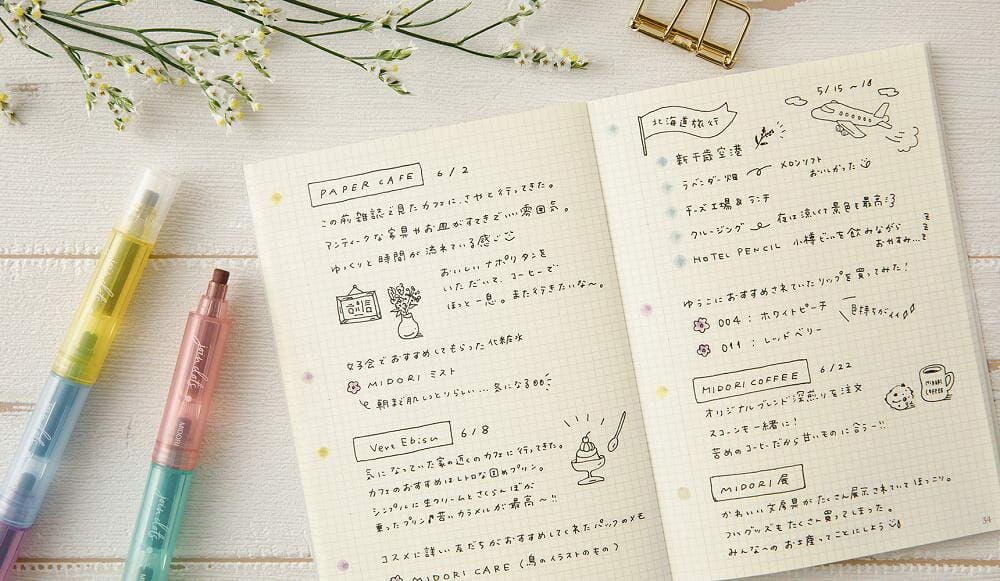 PAPER CAFE 6/2
この前雑誌で見たカフェに、さやと行ってきた。
アンティークな家具やお皿がすてきでいい雰囲気。
ゆっくりと時間が流れている感じ
おいしいナポリタンを
いただいて、コーヒーで
ほっと一息。また行きたいな〜。
女子会でおすすめしてもらった化粧水
MIDORI ミスト
朝まで肌しっとりらしい…気になる
Vert Ebisu 6/8
気になっていた家の近くのカフェに行ってきた。
カフェのおすすめはレトロな固めプリン。
シンプルに生クリームとさくらんぼが
乗ったプリン 苦いカラメルが最高〜!!
コスメに詳しい友だちがおすすめしてくれたパックのメモ
MIDORI CARE (鳥のイラストのもの)
5/15 〜 18
北海道旅行
新千歳空港
ラベンダー畑 メロンソフト
おいしかった
チーズ工場&ランチ
クルージング 夜は涼しくて景色も最高
HOTEL PENCIL 小樽ビールを飲みながら
おやすみ…
zzz
ゆうこにおすすめされていたリップを買ってみた!
004 : ホワイトピーチ
011 : レッドベリー
色持ちがイイ
MIDORI COFFEE 6/22
オリジナルブレンド深煎りを注文
スコーンも一緒に!
苦めのコーヒーだから甘いものに合う〜!!
MIDORI COFFEE
MIDORI展
かわいい文房具がたくさん展示されていてほっこり。
ついグッズもたくさん買ってしまった。
みんなへのお土産ってことにしよう
34
MIDORI